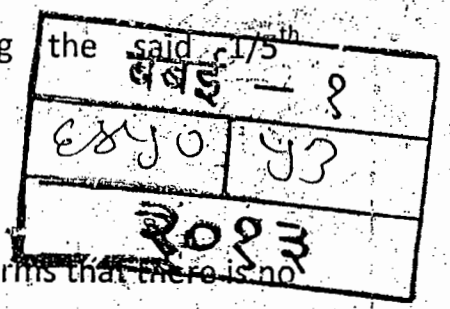 g the said 1/5th
बबइ – १
५३
२०१३
rms that there is no